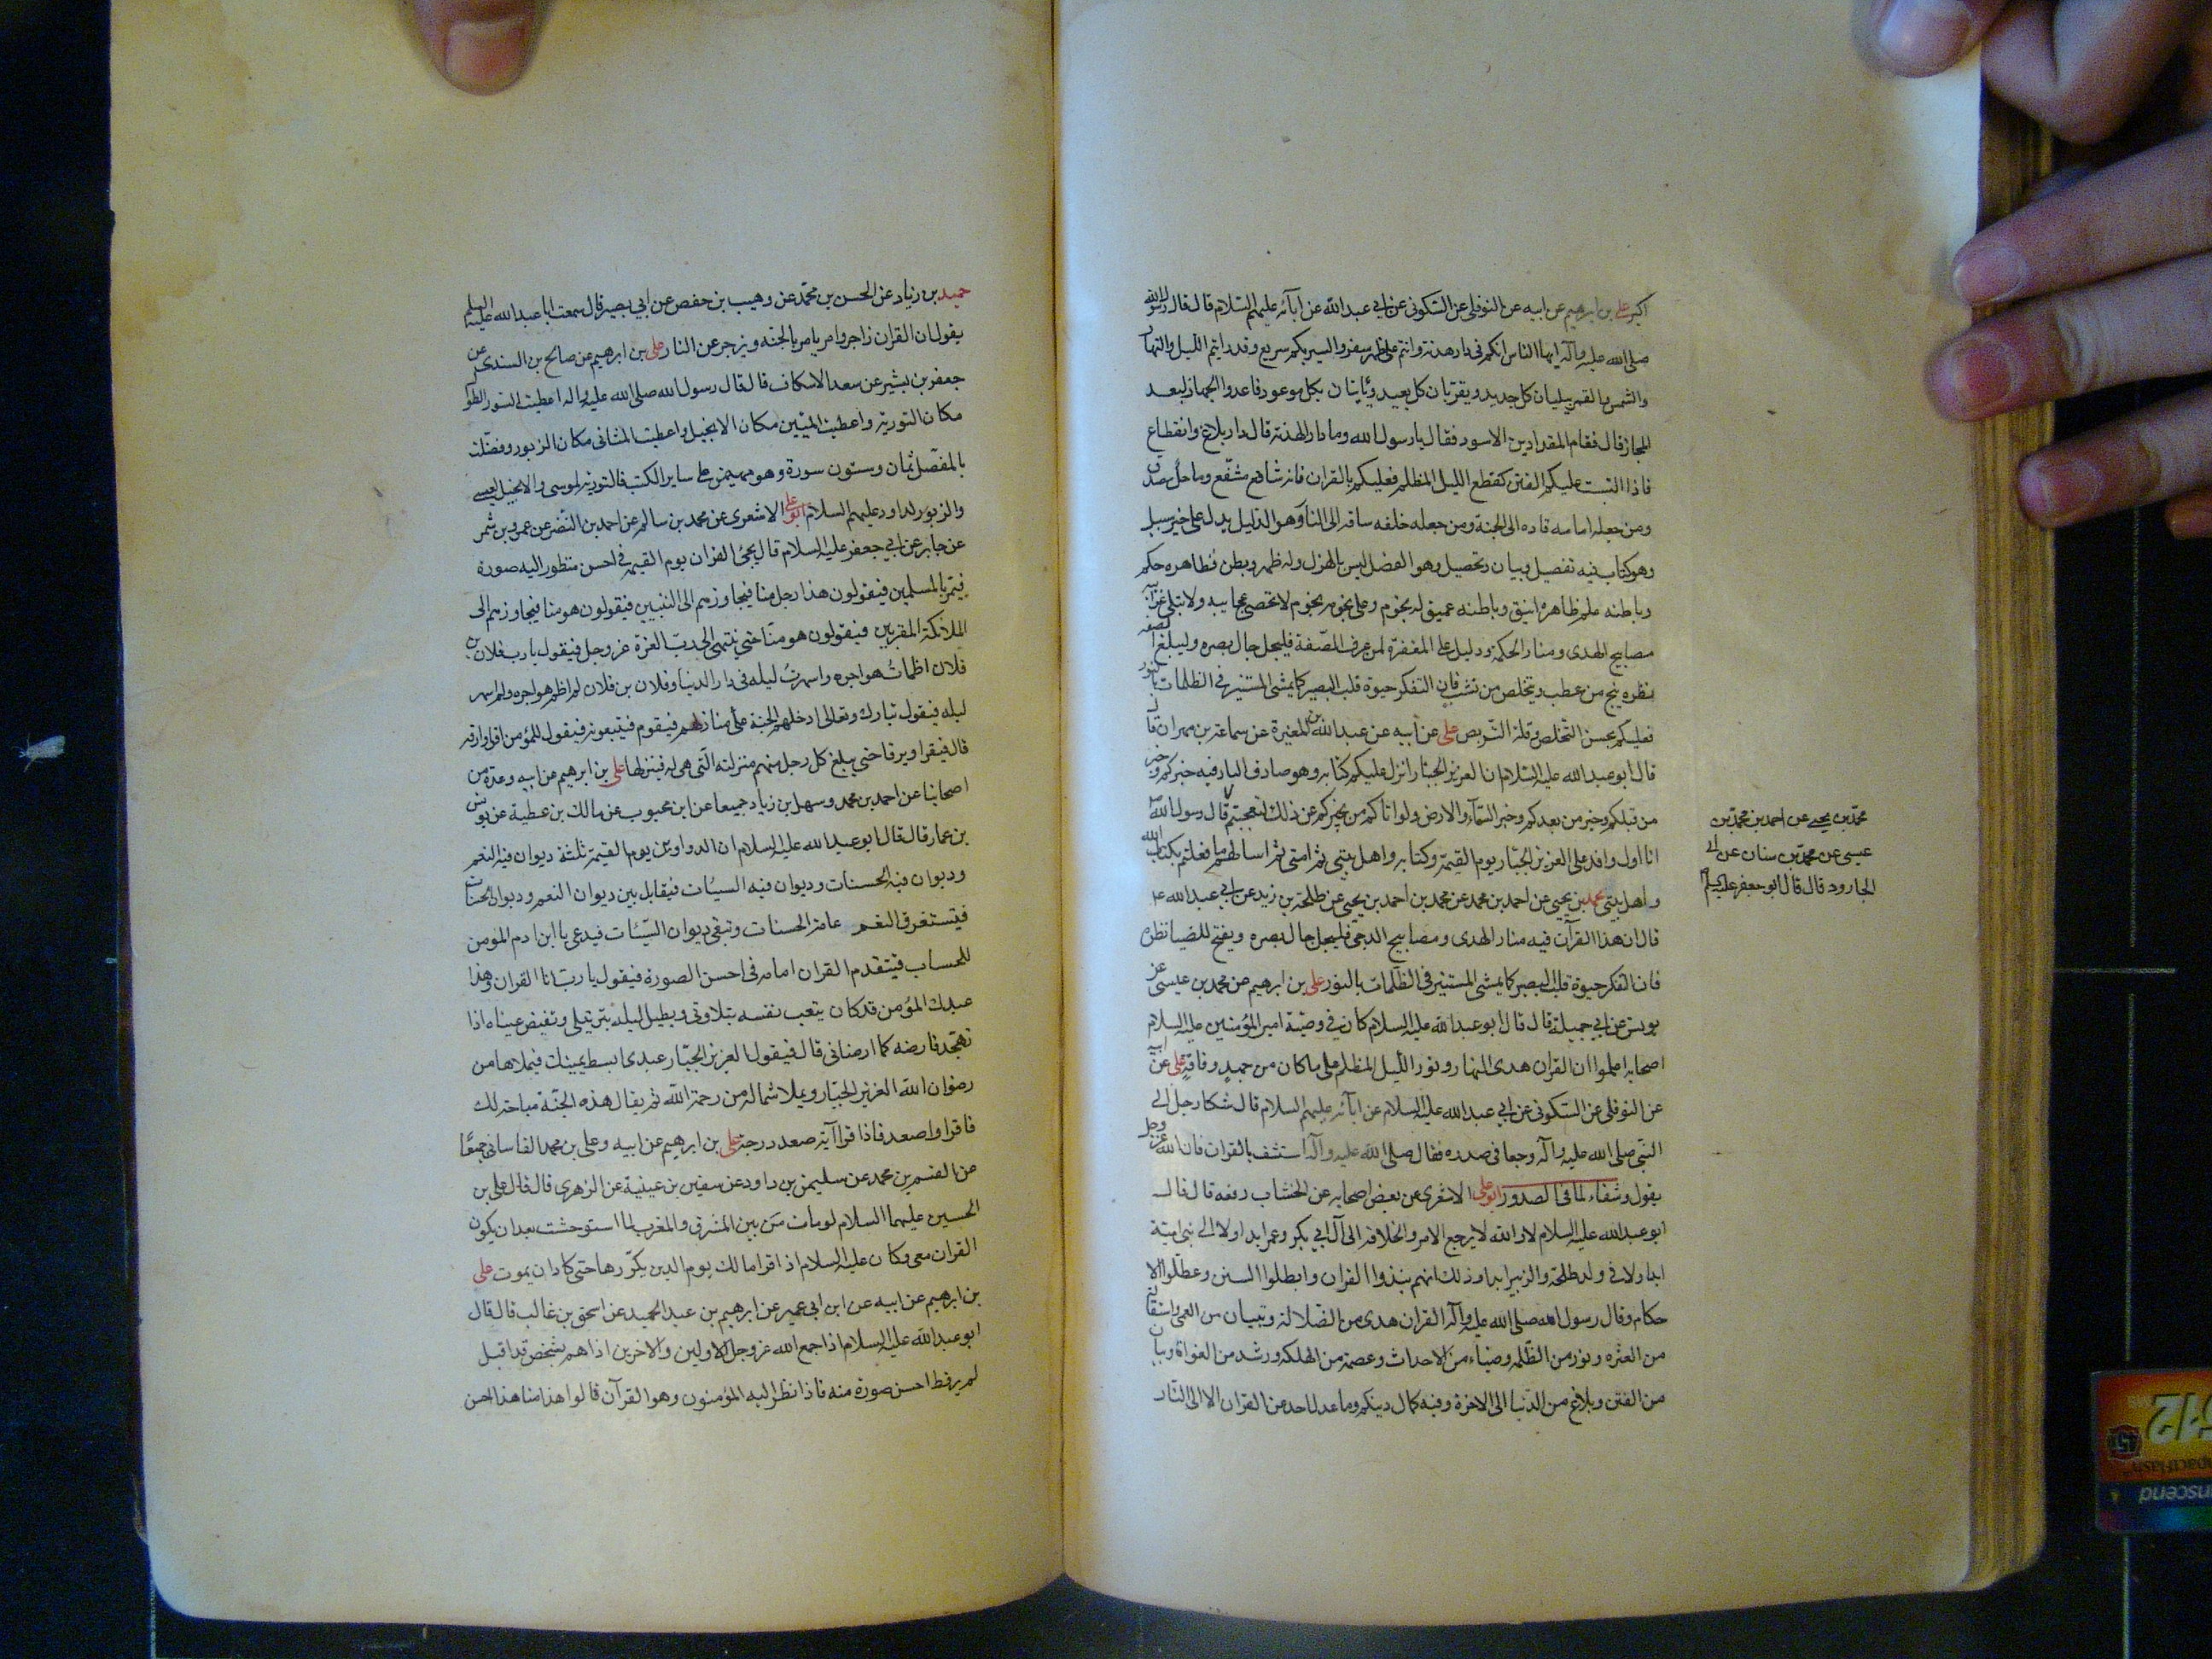 اكبر علي بن ابرهيم عن ابيه عن النوفلي عن السكوني عن ابي عبد الله عن ابآئه عليهم السلام قال قال رسول الله
صلى الله عليه وآله ايها الناس انكم في دار هدنة وانتم على ظهر سفر والسير بكم سريع وقد رايتم الليل والنهار
والشمس والقمر يبليان كل جديد ويقربان كل بعيد وياتيان بكل موعود فاعدوا الجهاز لبعد
المجاز قال فقام المقداد بن الاسود فقال يا رسول الله وما دار الهدنة قال دار بلاغ وانقطاع
فاذا التبست عليكم الفتن كقطع الليل المظلم فعليكم بالقران فانه شافع مشفع وماحل مصدق
ومن جعله امامه قاده الى الجنة ومن جعله خلفه ساقه الى النار وهو الدليل يدل على خير سبيل
وهو كتاب فيه تفصيل وبيان وتحصيل وهو الفصل ليس بالهزل وله ظهر وبطن فظاهره حكم
وباطنه علم ظاهره انيق وباطنه عميق له نجوم وعلى نجومه نجوم لا تحصى عجايبه ولا تبلى غرآئبه
مصابيح الهدى ومنار الحكمة ودليل على المغفرة لمن عرف الصفة فليجل جال بصره وليبلغ الصفه
نظره ينج من عطب ويتخلص من نشب فان التفكر حيوة قلب البصير كما يمشي المستنير في الظلمات بالنور
فعليكم بحسن التخلص وقلة التربص علي عن ابيه عن عبد الله بن المغيرة عن سماعة بن مهران قال
قال ابو عبد الله عليه السلام ان العزيز الجبار انزل عليكم كتابه وهو صادق البار فيه خبركم وخبر
من قبلكم وخبر من بعدكم وخبر السمآء والارض ولو اتاكم من يخبركم عن ذلك لتعجبتم قال رسول الله
انا اول وافد على العزيز الجبار يوم القيمة وكتابه واهل بيتي ثم امتي ثم اسالهم ما فعلتم بكتاب الله
و اهل بيتي محمد بن يحيى عن احمد بن محمد عن محمد بن احمد بن يحيى عن طلحة بن زيد عن ابي عبد الله ع
قال ان هذا القرآن فيه منار الهدى ومصابيح الدجى فليجل جال بصره ويفتح للضيا نظره
فان التفكر حيوة قلب البصير كما يمشي المستنير في الظلمات بالنور علي بن ابرهيم عن محمد بن عيسى عن
يونس عن ابي جميلة قال قال ابو عبد الله عليه السلام كان في وصية امير المؤمنين عليه السلام
اصحابه اعلموا ان القران هدى النهار ونور الليل المظلم على ما كان من جهد وفاقة علي عن ابيه
عن النوفلي عن السكوني عن ابي عبد الله عليه السلام عن ابآئه عليهم السلام قال شكا رجل الى
النبي صلى الله عليه وآله وجعا في صدره فقال صلى الله عليه وآله استشف بالقرات فان الله عز وجل
يقول وشفاء لما في الصدور ابو علي الاشعري عن بعض اصحابه عن الخشاب رفعه قال قال
ابو عبد الله عليه السلام لا والله لا يرجع الامر والخلافة الى آل ابي بكر وعمر ابدا ولا الى بني امية
ابدا ولا في ولد طلحة والزبير ابدا وذلك انهم نبذوا القران وابطلوا السنن وعطلوا الا
حكام وقال رسول الله صلى الله عليه وآله القران هدى من الضلالة وتبيان من العمى واستقالة
من العثره ونور من الظلمه وضياء من الاحداث وعصمة من الهلكه ورشد من الغواة وبيان
من الفتن وبلاغ من الدنيا الى الاخرة وفيه كمال دينكم وما عدل احد من القران الا الى النار
محمد بن يحيى عن احمد بن محمد بن
عيسى عن محمد بن سنان عن ابي
الجارود قال قال ابو جعفر عليه السلام
حميد بن زياد عن الحسن بن محمد عن وهيب بن حفص عن ابي بصير قال سمعت ابا عبد الله عليه السلم
يقول ان القران زاجر وامر يامر بالجنه ويزجر عن النار علي بن ابرهيم عن صالح بن السندي عن
جعفر بن بشير عن سعد الاسكاف قال قال رسول الله صلى الله عليه واله اعطيت السور الطول
مكان التورية واعطيت المئين مكان الانجيل واعطيت المثاني مكان الزبور وفضلت
بالمفصل ثمان وستون سورة وهو مهيمن على ساير الكتب فالتورية لموسى والانجيل لعيسى
والزبور لداود عليهم السلام ابو علي الاشعري عن محمد بن سالم عن احمد بن النضر عن عمرو بن شمر
عن جابر عن ابي جعفر عليه السلام قال يجئ القران يوم القيمة في احسن منظور اليه صورة
فيمر بالمسلمين فيقولون هذا رجل منا فيجاوزهم الى النبيين فيقولون هو منا فيجاوزهم الى
الملائكة المقربين فيقولون هو منا حتى ينتهي الى رب العزة عز وجل فيقول يا رب فلان بن
فلان اظمات هواجره واسهرت ليله في دار الدنيا وفلان بن فلان لم اظم هواجره ولم اسهر
ليله فيقول تبارك وتعالى ادخلهم الجنة على منازلهم فيقوم فيتبعونه فيقول للمؤمن اقرا وارقه
قال فيقرا ويرقا حتى يبلغ كل رجل منهم منزلته التي هي له فينزلها علي بن ابرهيم عن ابيه وعدة من
اصحابنا عن احمد بن محمد وسهل بن زياد جميعا عن ابن محبوب عن مالك بن عطية عن يونس
بن عمار قال قال ابو عبد الله عليه السلام ان الدواوين يوم القيمة ثلثة ديوان فيه النعم
وديوان فيه الحسنات وديوان فيه السيئات فيقابل بين ديوان النعم وديوان الحسنات
فيتستغرق النعم عامة الحسنات وتبقى ديوان السيئات فيدعى يا ابن ادم المومن
للحساب فيتقدم القران امامه في احسن الصورة فيقول يا رب انا القران وهذا
عبدك المؤمن قد كان يتعب نفسه بتلاوتي ويطيل ليله بترتيلي وتفيض عيناه اذا
تهجد فارضه كما ارضاني قال فيقول العزيز الجبار عبدي ابسط يمينك فيملاها من
رضوان الله العزيز الجبار ويملا شماله من رحمة الله ثم يقال هذه الجنة مباحة لك
فاقرا واصعد فاذا قرا آية صعد درجة علي بن ابرهيم عن ابيه وعلي بن محمد القاساني جميعا
عن القسم بن محمد عن سليمن بن داود عن سفين بن عيينة عن الزهري قال قال علي بن
الحسين عليهما السلام لو مات من بين المشرق والمغرب لما استوحشت بعد ان يكون
القران معي وكان عليه السلام اذا قرا مالك يوم الدين يكررها حتى كاد ان يموت علي
بن ابرهيم عن ابيه عن ابن ابي عمير عن ابرهيم بن عبد الحميد عن اسحق بن غالب قال قال
ابو عبد الله عليه السلام اذا جمع الله عز وجل الاولين والاخرين اذا هم بشخص قد اقبل
لم ير قط احسن صورة منه فاذا نظر اليه المؤمنون وهو القرآن قالوا هذا منا هذا احسن